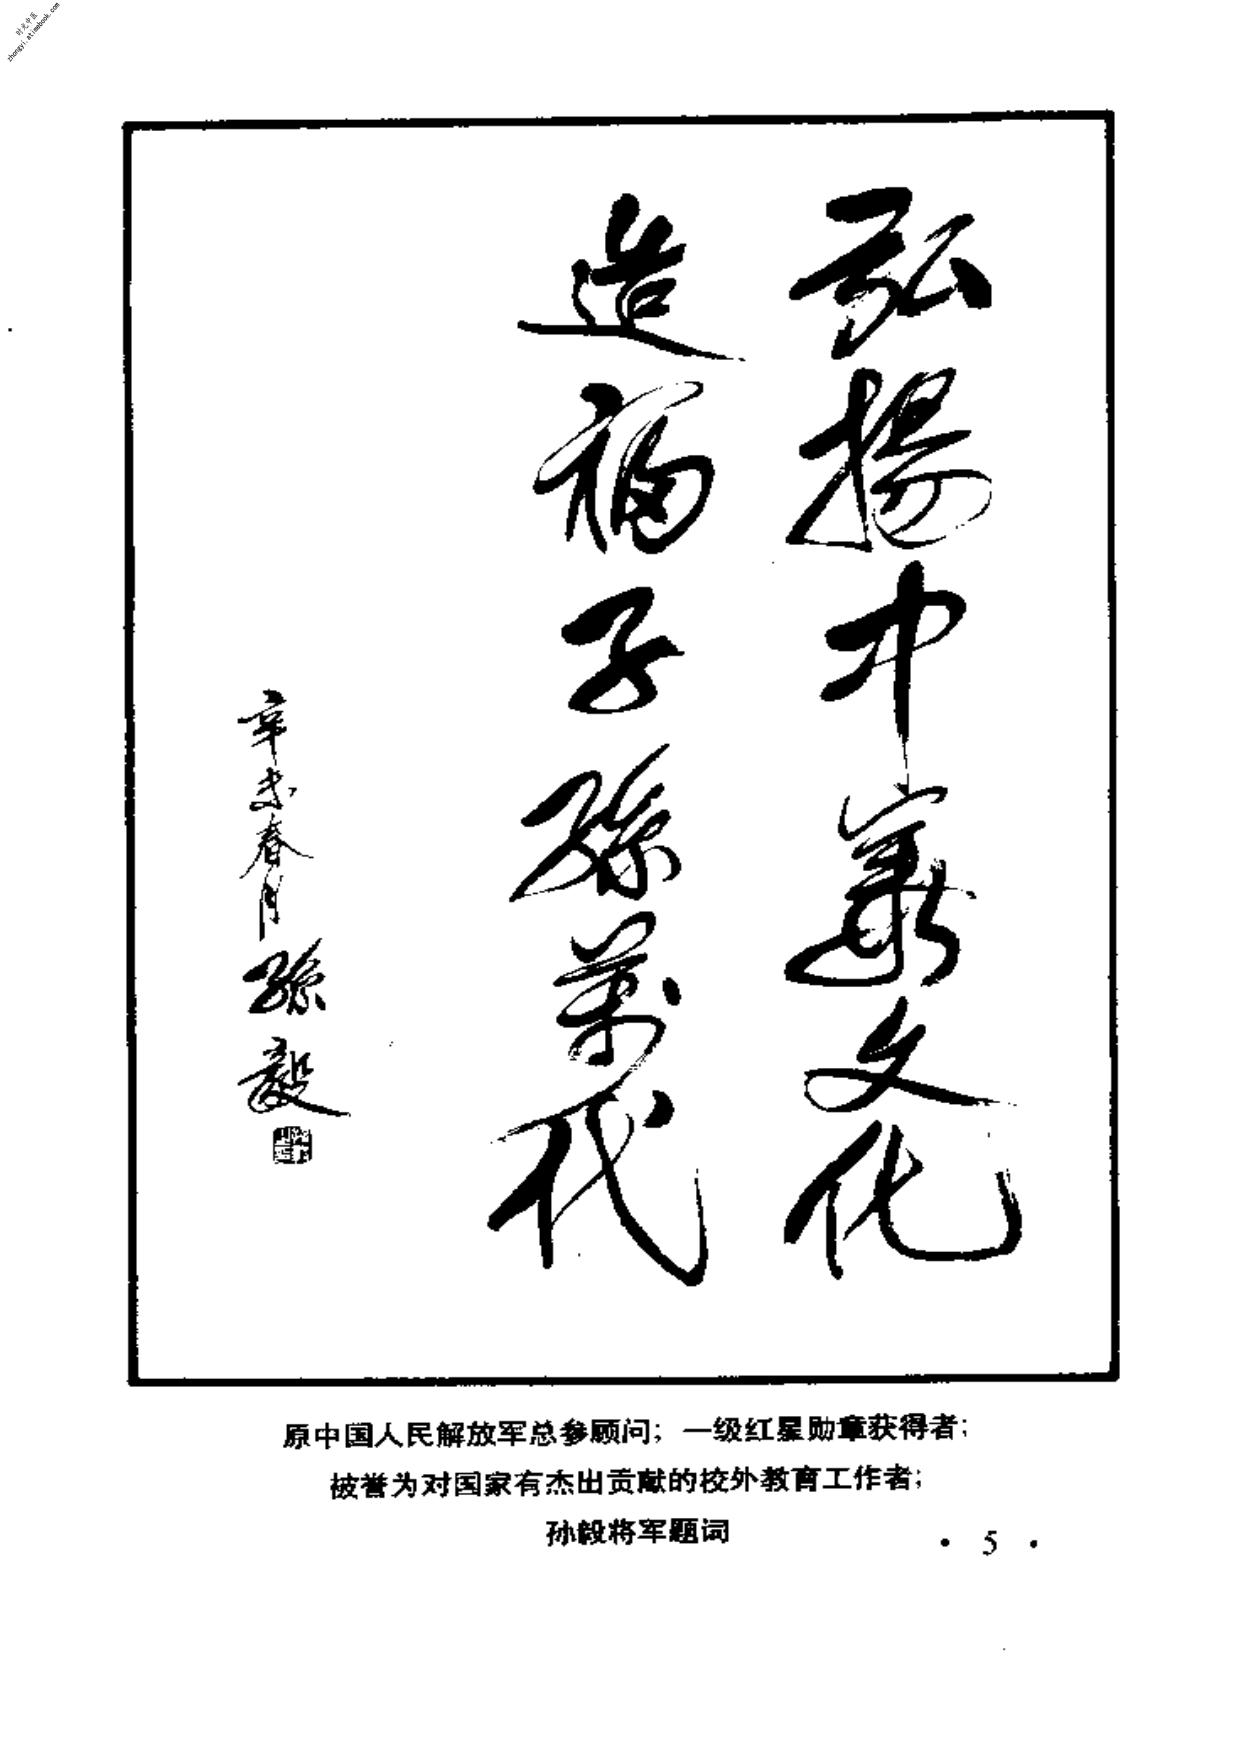 时光中医
zhongyi.atimebook.com
弘揚中華文化
造福子孫萬代
辛未春月孫毅
原中国人民解放军总参顾问；一级红星勋章获得者；
被誉为对国家有杰出贡献的校外教育工作者；
孙毅将军题词
• 5 •